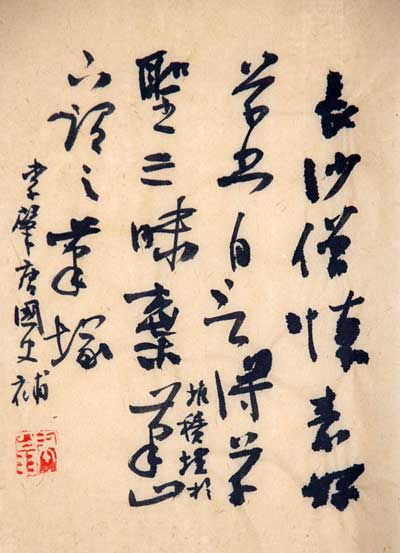 長沙僧懷素好
草书自言得草
聖三昧棄筆堆積埋於山
下謂之筆塚
李肇唐國史補